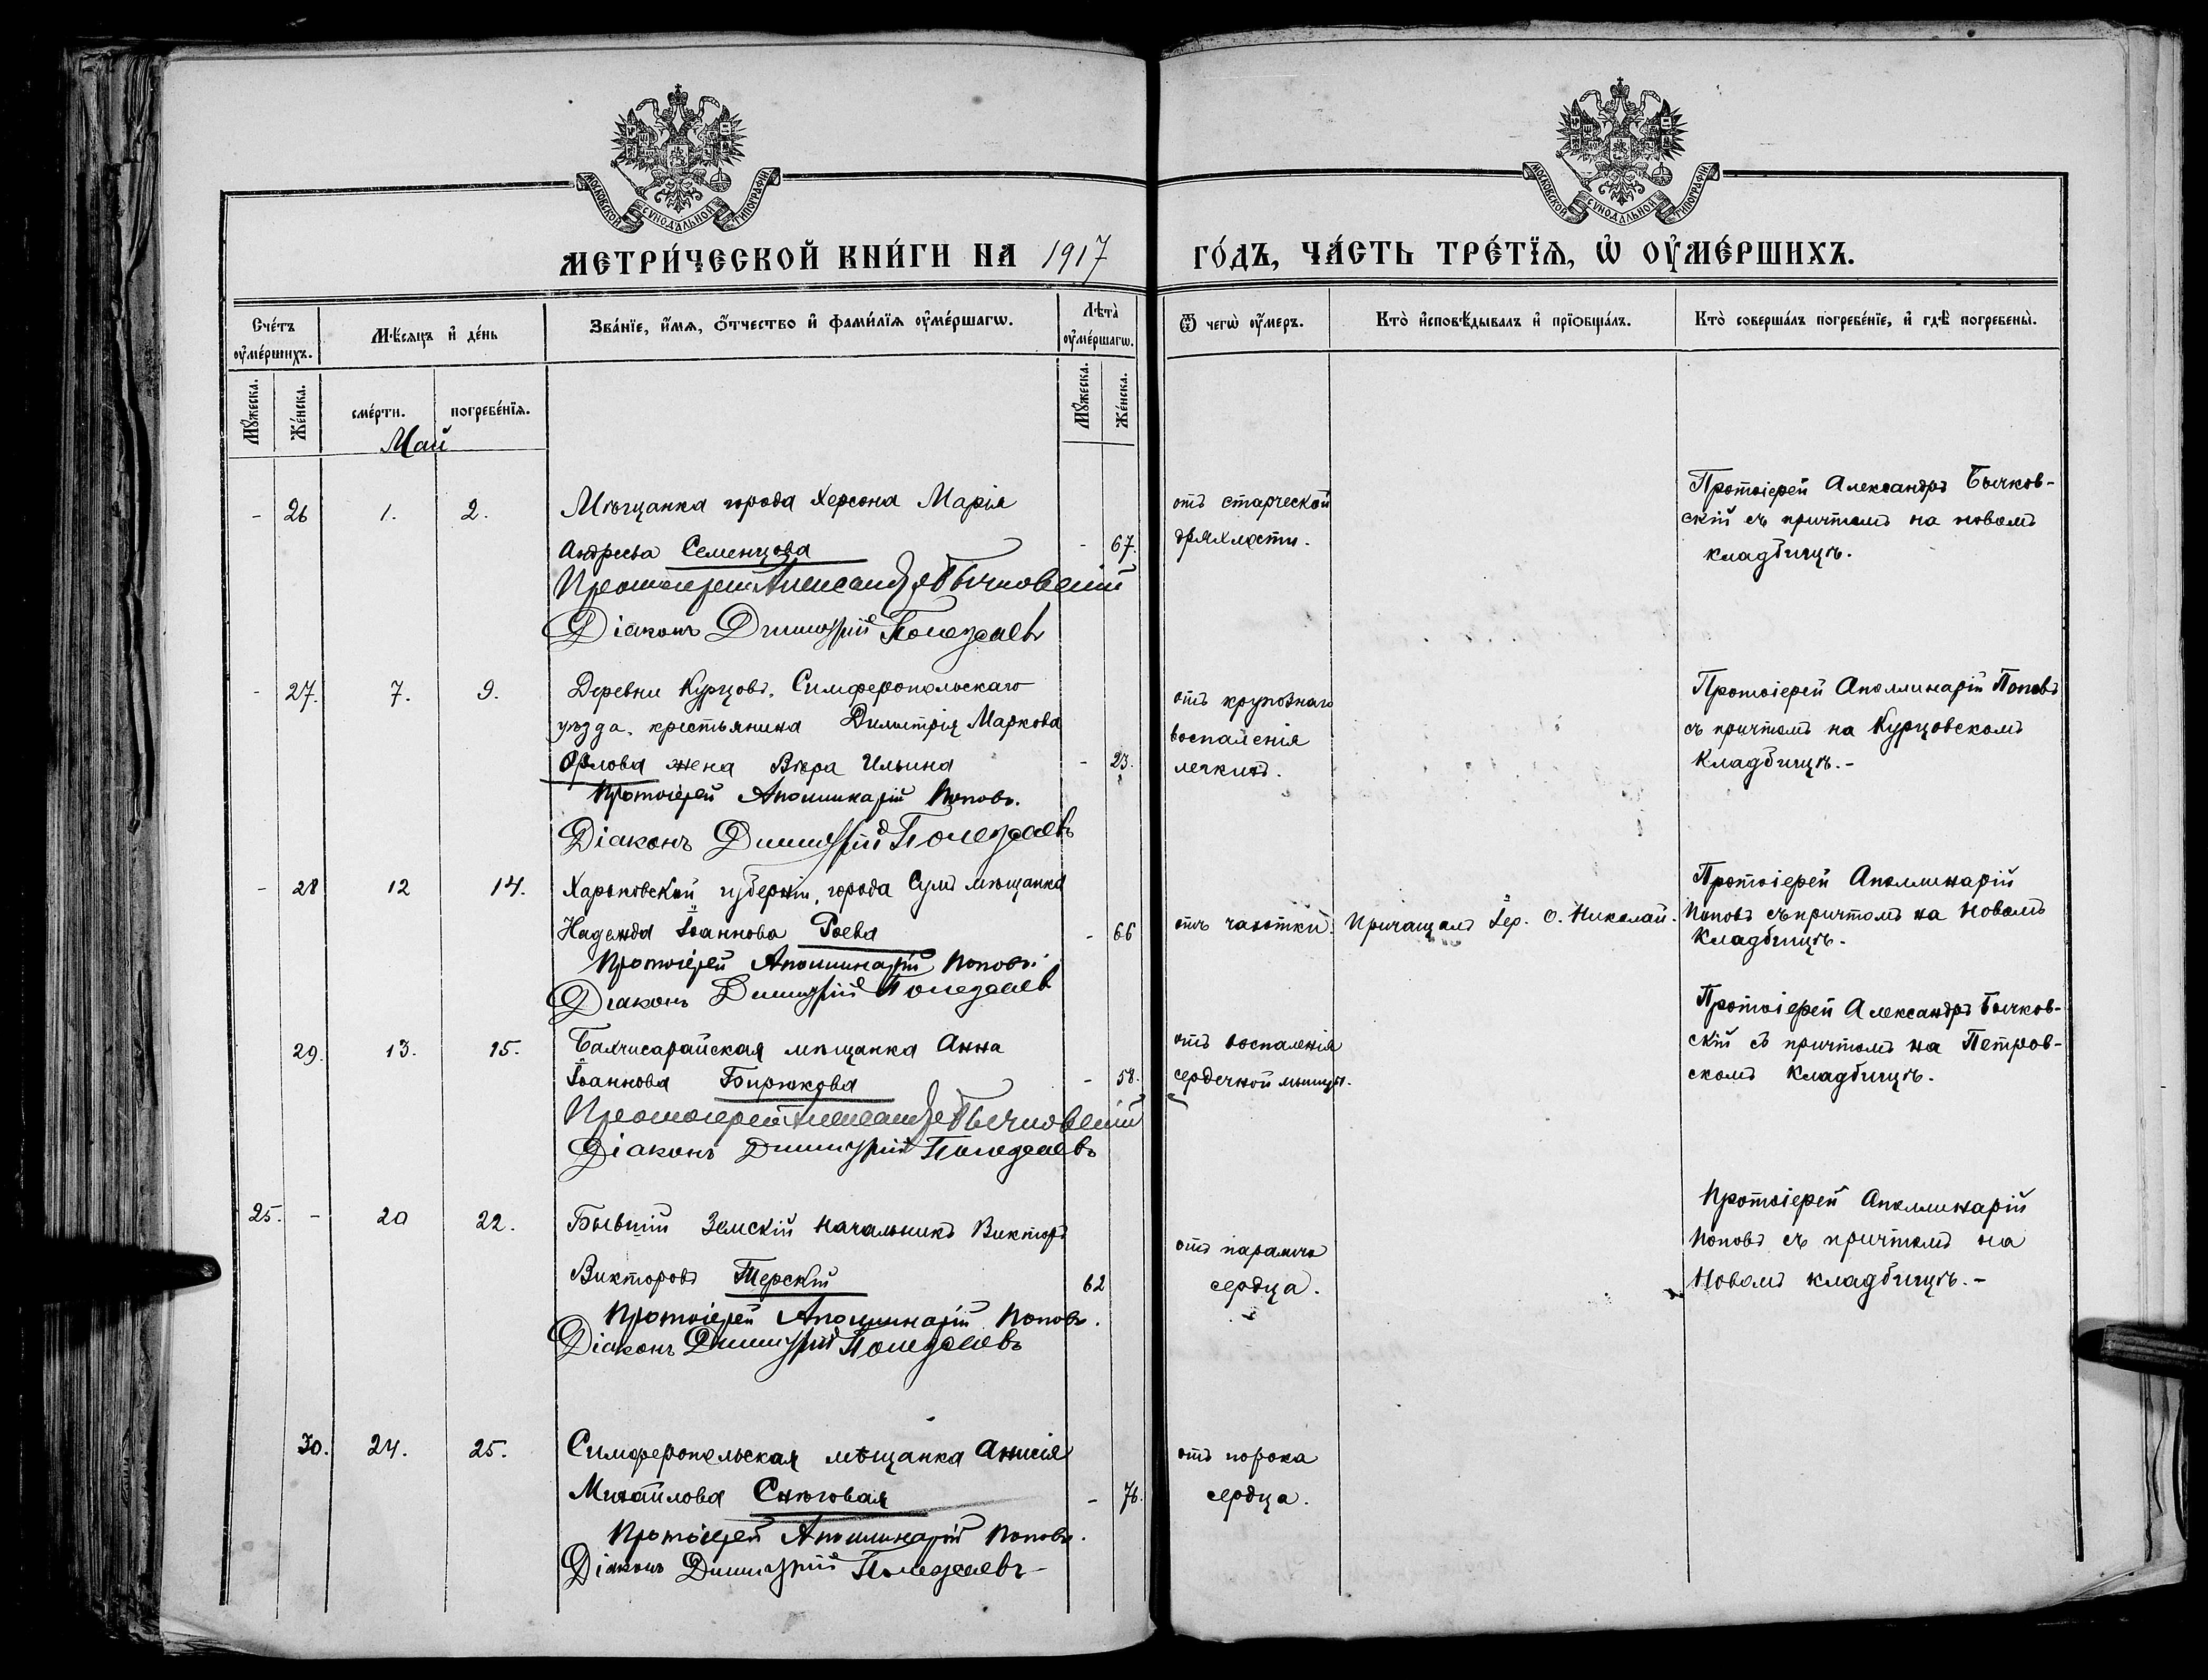 МОСКОВСКОЙ СУНОДАЛЬНОЙ ТИПОГРАФІИ
МОСКОВСКОЙ СУНОДАЛЬНОЙ ТИПОГРАФІИ
МЕТРИ́ЧЕСКОЙ КНИ́ГИ НА 1917 ГО́ДЪ, ЧА́СТЬ ТРЕ́ТЇѦ, Ѡ҆ ОУ҆МЕ́РШИХЪ.
Сче́тъ оу҆ме́ршихъ.
Мꙋ́жеска.
Же́нска.
Мѣ́сѧцъ и҆ де́нь
сме́рти.
погребе́нїѧ.
Зва́нїе, и҆́мѧ, ѻ҆́тчество и҆ фами́лїѧ оу҆ме́ршагѡ.
Лѣта̀ оу҆ме́ршагѡ.
Мꙋ́жеска.
Же́нска.
Ѿ чегѡ̀ оу҆́меръ.
Кто̀ и҆сповѣ́дывалъ и҆ прїѡбща́лъ.
Кто̀ соверша́лъ погребе́нїе, и҆ гдѣ̀ погребены̀.
Май
- 26 1. 2. Мѣщанка города Херсона Марія
Андреева Семенцова - 67.
Протоіерей Александръ Бычковскій
Діаконъ Димитрій Полежаевъ
отъ старческой
дряхлости.
Протоіерей Александръ Бычков-
скій съ причтомъ на новомъ
кладбищѣ.
- 27. 7. 9. Деревни Курцовъ, Симферопольскаго
уѣзда, крестьянина Димитрія Маркова
Орлова жена Вѣра Ильина - 23.
Протоіерей Аполлинарій Поповъ.
Діаконъ Димитрій Полежаевъ
отъ крупознаго
воспаленія
легкихъ.
Протоіерей Аполлинарій Поповъ
съ причтомъ на Курцовскомъ
Кладбищѣ.-
- 28 12 14. Харьковской губерніи, города Сумъ мѣщанка
Надежда Іоаннова Роева - 66
Протоіерей Аполлинарій Поповъ.
Діаконъ Димитрій Полежаевъ
отъ чахотки. Причащалъ Іер. О. Николай.
Протоіерей Аполлинарій
Поповъ съ причтомъ на Новомъ
Кладбищѣ.
29. 13. 15. Бахчисарайская мѣщанка Анна
Іоаннова Бирюкова - 58.
Протоіерей Александръ Бычковскій
Діаконъ Димитрій Полежаевъ
отъ воспаленія
сердечной мышцы.
Протоіерей Александръ Бычков-
скій съ причтомъ на Петров-
скомъ Кладбищѣ.
25. - 20 22. Бывшій Земскій Начальникъ Викторъ
Викторовъ Терскій 62
Протоіерей Аполлинарій Поповъ.
Діаконъ Димитрій Полежаевъ
отъ паралича
сердца.
Протоіерей Аполлинарій
Поповъ съ причтомъ на
Новомъ кладбищѣ.-
30. 24. 25. Симферопольская мѣщанка Анисія
Михайлова Снѣговая - 76.
Протоіерей Аполлинарій Поповъ.
Діаконъ Димитрій Полежаевъ
отъ порока
сердца.